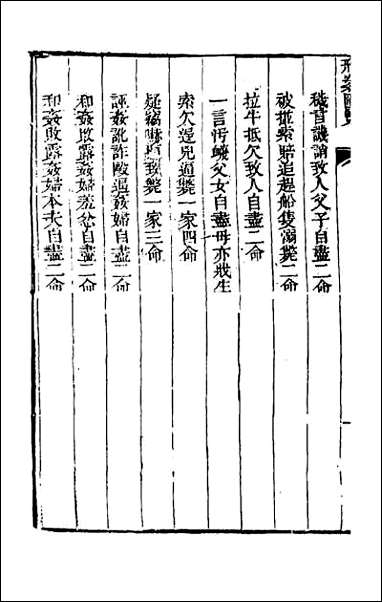 刑案匯覽
穢言譏誚致人父子自盡二命
被搬索賠追趕船隻溺斃二命
拉牛抵欠致人自盡二命
一言污衊父女自盡母亦戕生
索欠逞兇逼斃一家四命
疑竊嚇逼致斃一家三命
誣姦訛詐毆逼姦婦自盡二命
和姦敗露姦婦羞忿自盡二命
和姦敗露姦婦本夫自盡二命